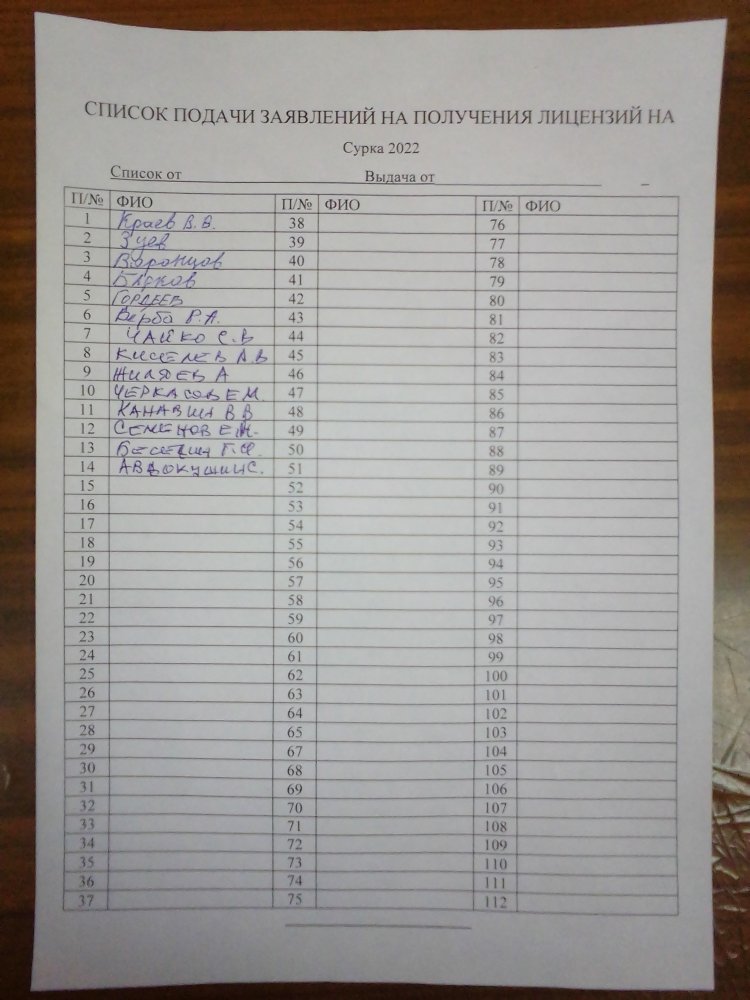 СПИСОК ПОДАЧИ ЗАЯВЛЕНИЙ НА ПОЛУЧЕНИЯ ЛИЦЕНЗИЙ НА
Сурка 2022
Список от Выдача от
П/№ ФИО П/№ ФИО П/№ ФИО
1 Краев В.В. 38 76
2 Зуев 39 77
3 Воронцов 40 78
4 41 79
5 Гордеев 42 80
6 Верба Р.А. 43 81
7 ЧАЙКО С.В 44 82
8 КИСЕЛЕВ А.В 45 83
9 ЖИЛЯЕВ А 46 84
10 ЧЕРКАСОВ Е М 47 85
11 КАНАВИН В В 48 86
12 СЕМЕНОВ Е.Н. 49 87
13 50 88
14 АВДОКУШИН С. 51 89
15 52 90
16 53 91
17 54 92
18 55 93
19 56 94
20 57 95
21 58 96
22 59 97
23 60 98
24 61 99
25 62 100
26 63 101
27 64 102
28 65 103
29 67 104
30 68 105
31 69 106
32 70 107
33 71 108
34 72 109
35 73 110
36 74 111
37 75 112